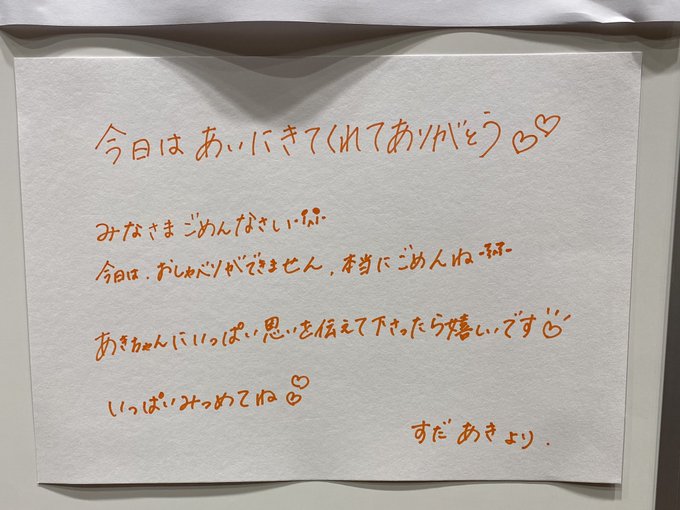 今日は あいにきてくれてありがとう♡♡
みなさまごめんなさい
今日は、おしゃべりができません、本当にごめんね
あきちゃんにいっぱい思いを伝えて下さったら嬉しいです♡
いっぱいみつめてね♡♡
すだ あきより.